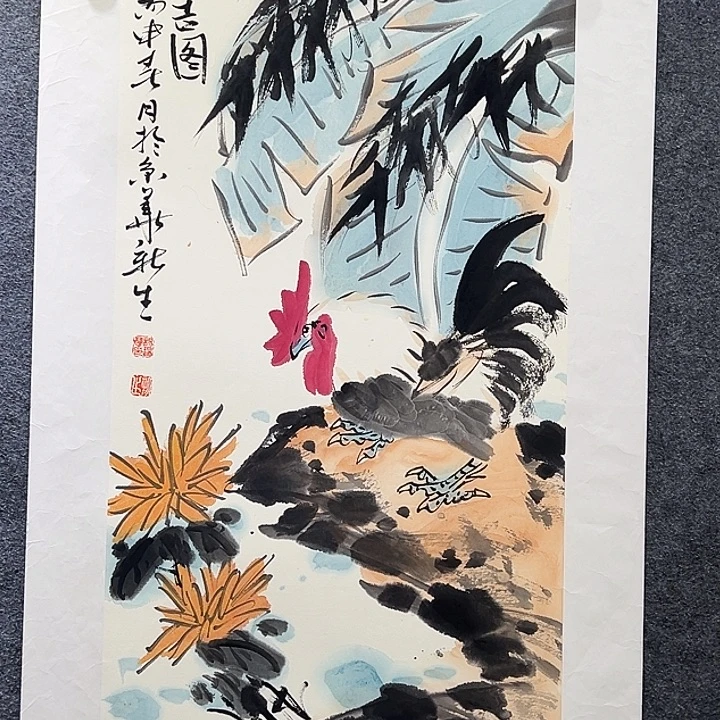 吉图
丙申春月於京華新生